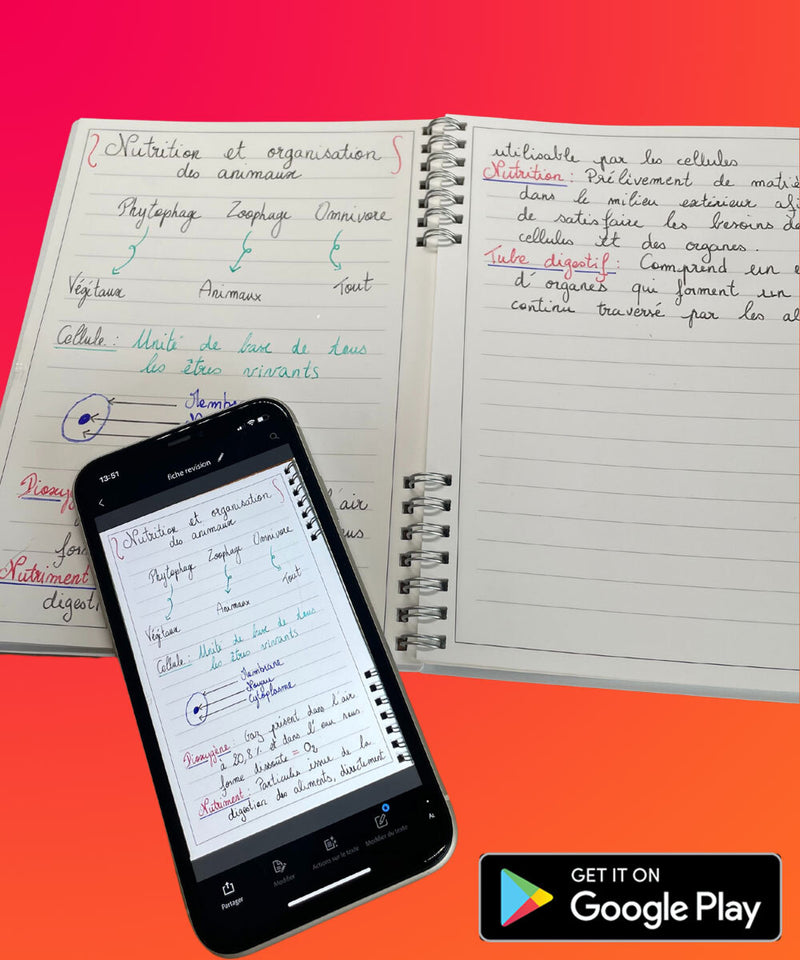 Nutrition et organisation
des animaux
Phytophage Zoophage Omnivore
Végétaux Animaux Tout
Cellule : Unité de base de tous
les êtres vivants
Memb
Dioxy
l'air
for
Nutriment
digesti
utilisable par les cellules
Nutrition : Prélèvement de matiè
dans le milieu extérieur afi
de satisfaire les besoins de
cellules et des organes.
Tube digestif : Comprend un e
d'organes qui forment un
continu traversé par les al
13:51
fiche revision
Nutrition et organisation
des animaux
Phytophage Zoophage Omnivore
Végétaux Animaux Tout
Cellule : Unité de base de tous
les êtres vivants
Membrane
Noyau
Cytoplasme
Dioxygène : Gaz présent dans l'air
à 20,8% et dans l'eau sous
forme dissoute = O2
Nutriment : Particules issue de la
digestion des aliments, directement
Partager
Modifier
Actions sur le texte
Modifier du texte
GET IT ON
Google Play